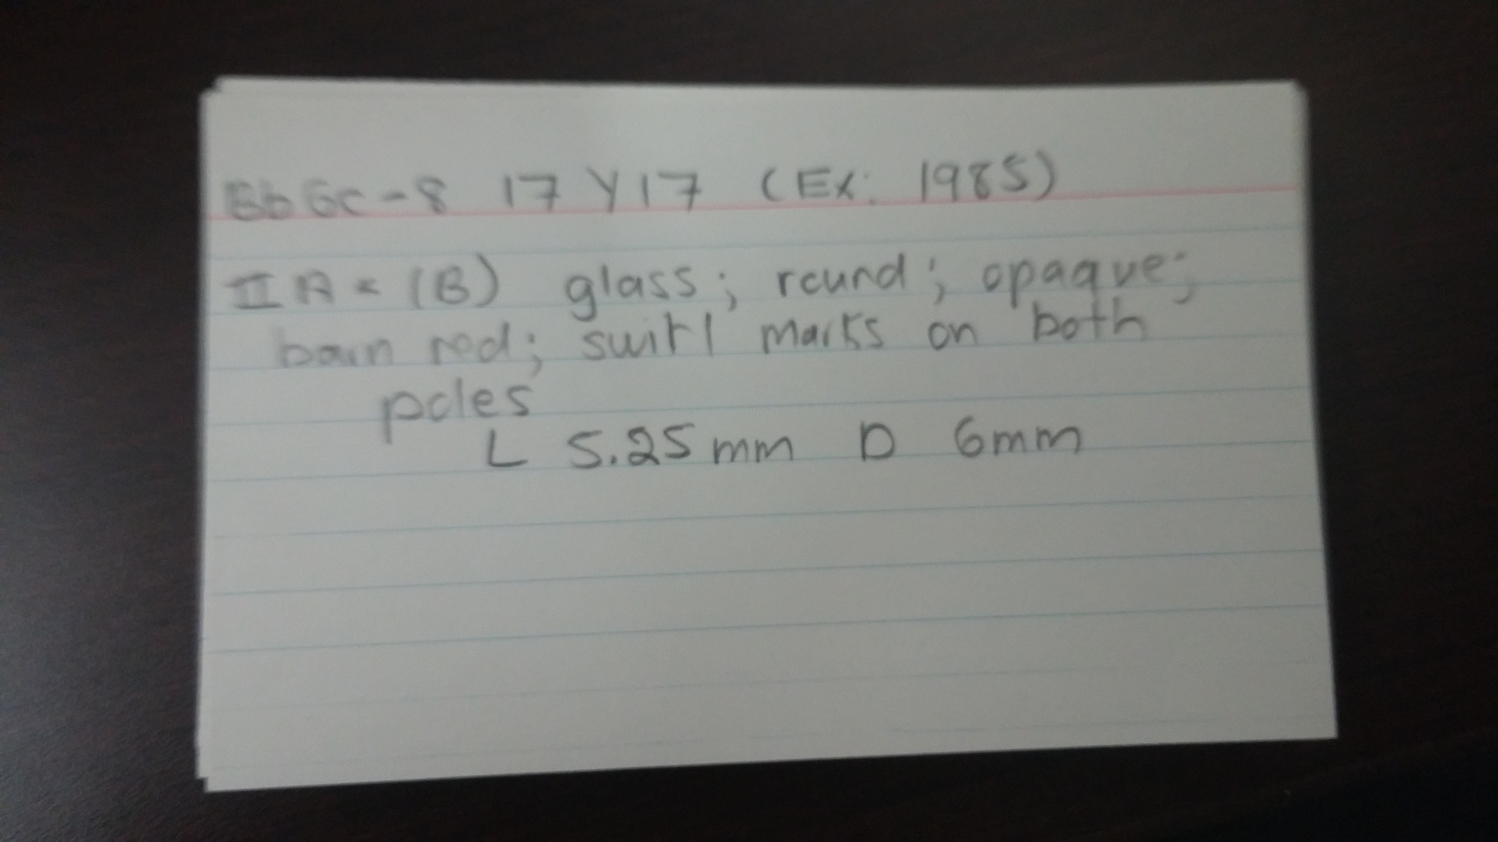 BbGc-8 17Y17 (Ex: 1985)
IIA* (B) glass; round; opaque;
barn red; swirl marks on both
poles
L 5.25mm D 6mm